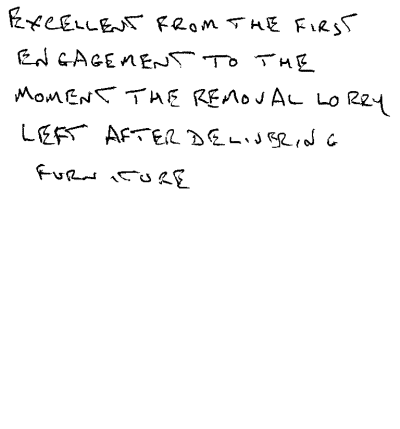 EXCELLENT FROM THE FIRST
ENGAGEMENT TO THE
MOMENT THE REMOVAL LORRY
LEFT AFTER DELIVERING
FURNITURE